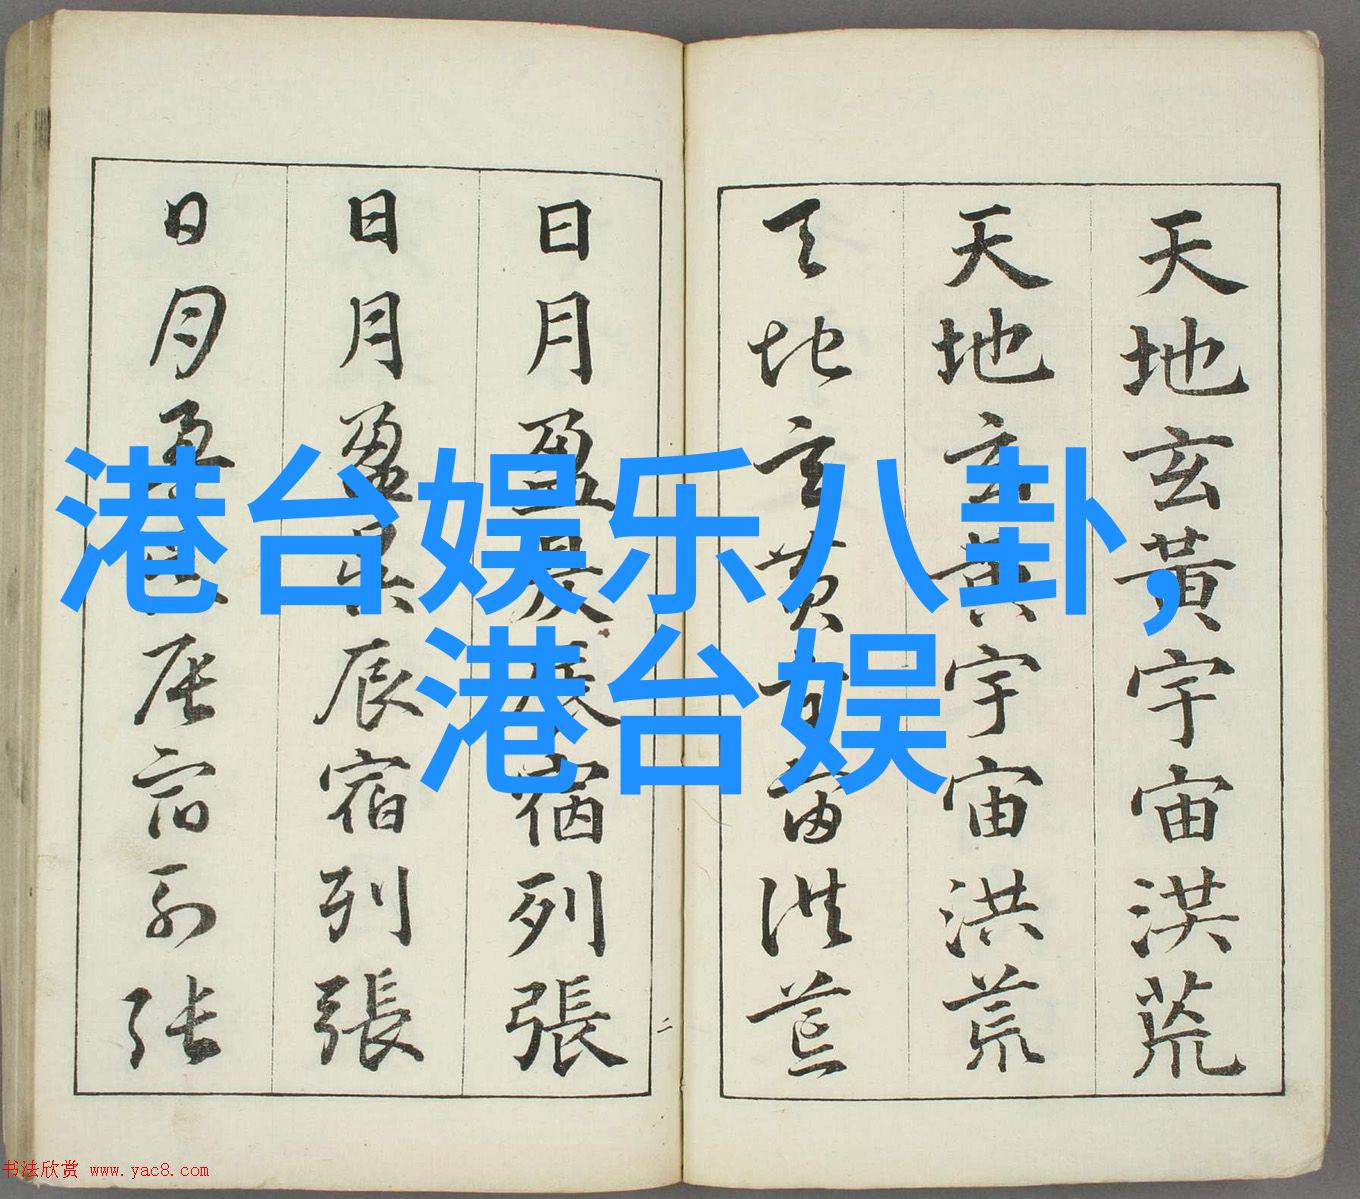 天地玄黃宇宙洪荒
天地玄黃宇宙洪荒
天地玄黄宇宙洪荒
日月盈昃辰宿列張
日月盈昃辰宿列張
日月盈昃辰宿列張
二
港台娱乐八卦,
港台娱
书法欣赏 www.yac8.com